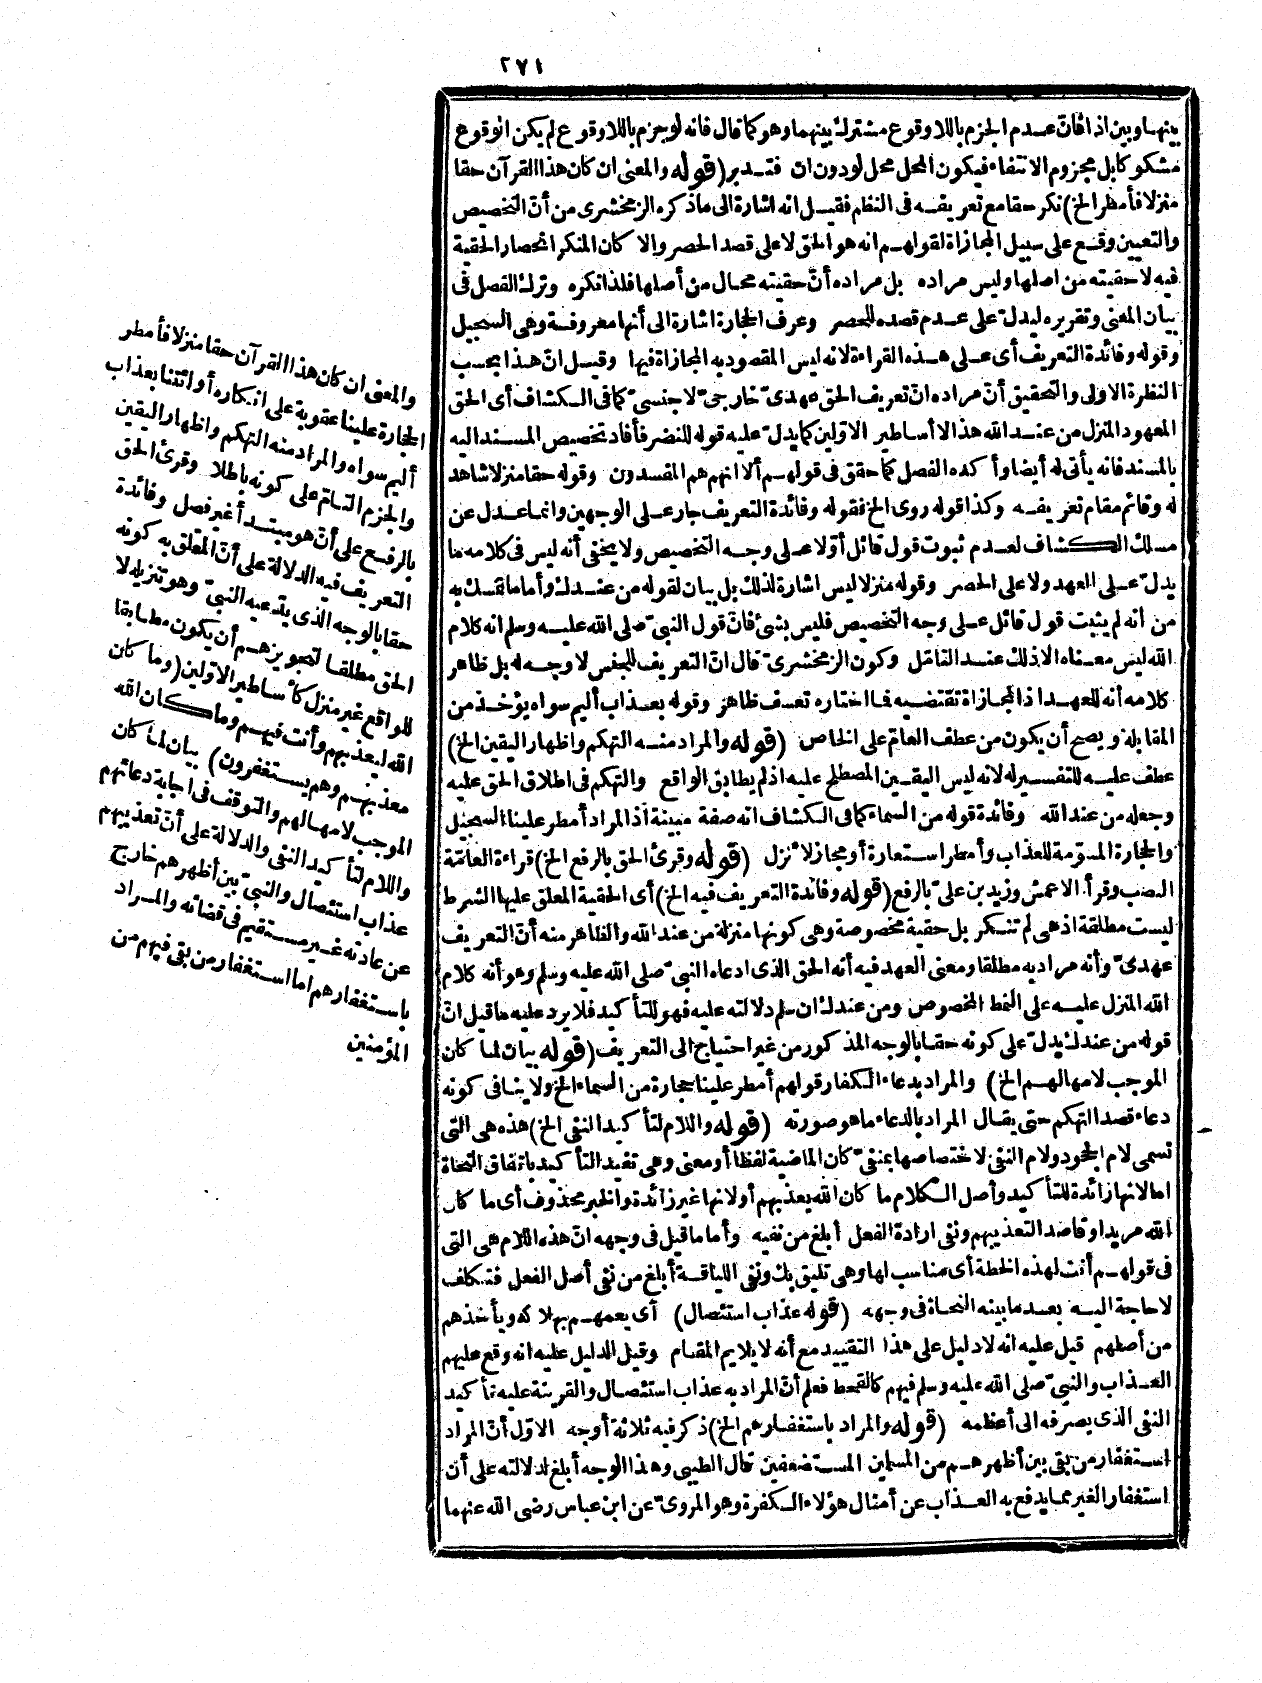 ٢٧١
بينهما وبين اذا فانّ عدم الجزم باللاوقوع مشترك بينهما وهو كما قال فانه لو جزم باللاوقوع لم يكن الوقوع
مشكوكا بل مجزوم الانتفاء فيكون المحل محل لو دون ان فتدبر (قوله والمعنى ان كان هذا القرآن حقا
منزلا فأمطر الخ) نكر حقا مع تعريفه فى النظم فقيل انه اشارة الى ما ذكره الزمخشرى من أنّ التخصيص
والتعيين وقع على سبيل المجازاة لقولهم انه هو الحق لا على قصد الحصر والا كان المنكر انحصار الحقية
فيه لا حقيته من اصلها وليس مراده بل مراده أنّ حقيته محال من أصلها فلذا نكره وترك الفصل فى
بيان المعنى وتقريره ليدل على عدم قصده للحصر وعرف الحجارة اشارة الى أنها معروفة وهى السجيل
وقوله وفائدة التعريف أى على هذه القراءة لانه ليس المقصود به المجازاة فيها وقيل انّ هذا بحسب
النظرة الاولى والتحقيق أنّ مراده انّ تعريف الحق عهدىّ خارجىّ لا جنسىّ كما فى الكشاف أى الحق
المعهود المنزل من عند الله هذا لا أساطير الاوّلين كما يدلّ عليه قوله للنضر فأفاد تخصيص المسند اليه
بالمسند فانه يأتى له أيضا وأكده الفصل كما حقق فى قولهم ألا انهم هم المفسدون وقوله حقا منزلا شاهد
له وقائم مقام تعريفه وكذا قوله روى الخ فقوله وفائدة التعريف جار على الوجهين وانما عدل عن
مسلك الكشاف لعدم ثبوت قول قائل أوّلا على وجه التخصيص ولا يخفى أنه ليس فى كلامه ما
يدلّ على العهد ولا على الحصر وقوله منزلا ليس اشارة لذلك بل بيان لقوله من عندك وأما ما تمسك به
من أنه لم يثبت قول قائل على وجه التخصيص فليس بشئ فانّ قول النبىّ صلى الله عليه وسلم انه كلام
الله ليس معناه الا ذلك عند التأمّل وكون الزمخشرىّ قال انّ التعريف للجنس لا وجه له بل ظاهر
كلامه أنه للعهد اذ المجازاة تقتضيه فما اختاره تعسف ظاهر وقوله بعذاب أليم سواه يؤخذ من
المقابلة ويصح أن يكون من عطف العامّ على الخاص (قوله والمراد منه التهكم واظهار اليقين الخ)
عطف عليه للتفسير له لانه ليس اليقين المصطلح عليه اذ لم يطابق الواقع والتهكم فى اطلاق الحق عليه
وجعله من عند الله وفائدة قوله من السماء كما فى الكشاف انه صفة مبينة اذ المراد أمطر علينا السجيل
والحجارة المسوّمة للعذاب وأمطر استعارة أو مجاز لأنزل (قوله وقرئ الحق بالرفع الخ) قراءة العامّة
النصب وقرأ الاعمش وزيد بن علىّ بالرفع (قوله وفائدة التعريف فيه الخ) أى الحقية المعلق عليها الشرط
ليست مطلقة اذ هى لم تنكر بل حقية مخصوصة وهى كونها منزلة من عند الله والظاهر منه أنّ التعريف
عهدىّ وأنه مراد به مطلقا ومعنى العهد فيه أنه الحق الذى ادعاه النبىّ صلى الله عليه وسلم وهو أنه كلام
الله المنزل عليه على النمط المخصوص ومن عندك ان سلم دلالته عليه فهو للتأكيد فلا يرد عليه ما قيل انّ
قوله من عندك يدلّ على كونه حقا بالوجه المذكور من غير احتياج الى التعريف (قوله بيان لما كان
الموجب لامهالهم الخ) والمراد بدعاء الكفار قولهم أمطر علينا حجارة من السماء الخ ولا ينافى كونه
دعاء قصد التهكم حتى يقال المراد بالدعاء ما هو صورته (قوله واللام لتأكيد النفى الخ) هذه هى التى
تسمى لام الجحود ولام النفى لاختصاصها بمنفىّ كان الماضية لفظا أو معنى وهى تفيد التأكيد باتفاق النحاة
اما لانها زائدة للتأكيد وأصل الكلام ما كان الله يعذبهم أو لانها غير زائدة والخبر محذوف أى ما كان
الله مريدا او قاصدا لتعذيبهم ونفى ارادة الفعل أبلغ من نفيه وأما ما قيل فى وجهه انّ هذه اللام هى التى
فى قولهم أنت لهذه الخطة أى مناسب لها وهى تليق بك ونفى اللياقة أبلغ من نفى أصل الفعل فتكلف
لا حاجة اليه بعد ما بينه النحاة فى وجهه (قوله عذاب استئصال) أى يعمهم بهلاكه ويأخذهم
من أصلهم قيل عليه انه لا دليل على هذا التقييد مع أنه لا يلايم المقام وقيل الدليل عليه انه وقع عليهم
العذاب والنبىّ صلى الله عليه وسلم فيهم كالقحط فعلم أنّ المراد به عذاب استئصال والقرينة عليه تأكيد
النفى الذى يصرفه الى أعظمه (قوله والمراد باستغفارهم الخ) ذكر فيه ثلاثة أوجه الاوّل أنّ المراد
استغفار من بقى بين أظهرهم من المسلمين المستضعفين قال الطيبى وهذا الوجه أبلغ لدلالته على أن
استغفار الغير مما يدفع به العذاب عن أمثال هؤلاء الكفرة وهو المروىّ عن ابن عباس رضى الله عنهما
والمعنى ان كان هذا القرآن حقا منزلا فأمطر
الحجارة علينا عقوبة على انكاره أو ائتنا بعذاب
أليم سواه والمراد منه التهكم واظهار اليقين
والجزم التامّ على كونه باطلا وقرئ الحق
بالرفع على أنّ هو مبتدأ غير فصل وفائدة
التعريف فيه الدلالة على أنّ المعلق به كونه
حقا بالوجه الذى يدّعيه النبىّ وهو تنزيله لا
الحق مطلقا لتجويزهم أن يكون مطابقا
للواقع غير منزل كأساطير الاوّلين (وما كان
الله ليعذبهم وأنت فيهم وما كان الله
معذبهم وهم يستغفرون) بيان لما كان
الموجب لامهالهم والتوقف فى اجابة دعائهم
واللام لتأكيد النفى والدلالة على أنّ تعذيبهم
عذاب استئصال والنبىّ بين أظهرهم خارج
عن عادته غير مستقيم فى قضائه والمراد
باستغفارهم اما استغفار من بقى فيهم من
المؤمنين